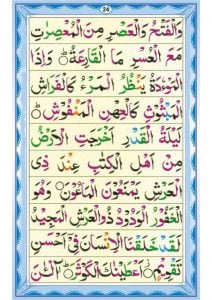 24
وَالْفَتْحُ وَالْعَصْرِ مِنَ الْمُعْصِرٰتِ
مَعَ الْعُسْرِ مَا الْقَارِعَةُ ۝ وَاِذَا
الْمَوْءٗدَةُ يَنْظُرُ الْمَرْءُ كَالْفَرَاشِ
الْمَبْثُوْثِ كَالْعِهْنِ الْمَنْفُوْشِ ۝
لَيْلَةُ الْقَدْرِ اَخْرَجَتِ الْاَرْضُ
مِنْ اَهْلِ الْكِتٰبِ عِنْدَ ذِى
الْعَرْشِ يَمْنَعُوْنَ الْمَاعُوْنَ ۝ وَهُوَ
الْغَفُوْرُ الْوَدُوْدُ ذُو الْعَرْشِ الْمَجِيْدُ
لَقَدْ خَلَقْنَا الْاِنْسَانَ فِىْ اَحْسَنِ
تَقْوِيْمٍ ۝ اَعْطَيْنٰكَ الْكَوْثَرَ ۝